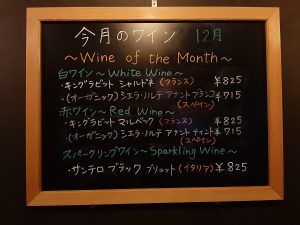 今月のワイン 12月
～Wine of the Month～
白ワイン～White Wine～
・キングラビット シャルドネ (フランス) ¥825
・(オーガニック) シエラ・ノルテ アナントブランコ ¥715
(スペイン)
赤ワイン～Red Wine～
・キングラビット マルベック (フランス) ¥825
・(オーガニック) シエラ・ノルテ アナント ティント ¥715
(スペイン)
スパークリングワイン～Sparkling Wine～
・サンテロ ブラック ブリュット (イタリア) ¥825